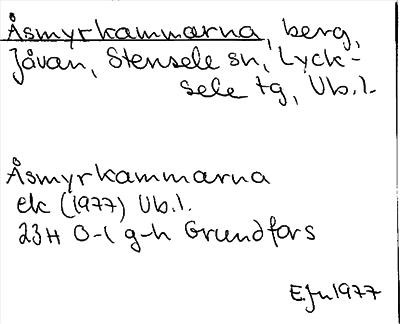 Åsmyrkammarna, berg,
Jåvan, Stensele sn, Lyck-
sele tg, Vb.l.
Åsmyrkammarna
ek (1977) Vb.l.
23H 0-1 g-h Grundfors
EJn 1977